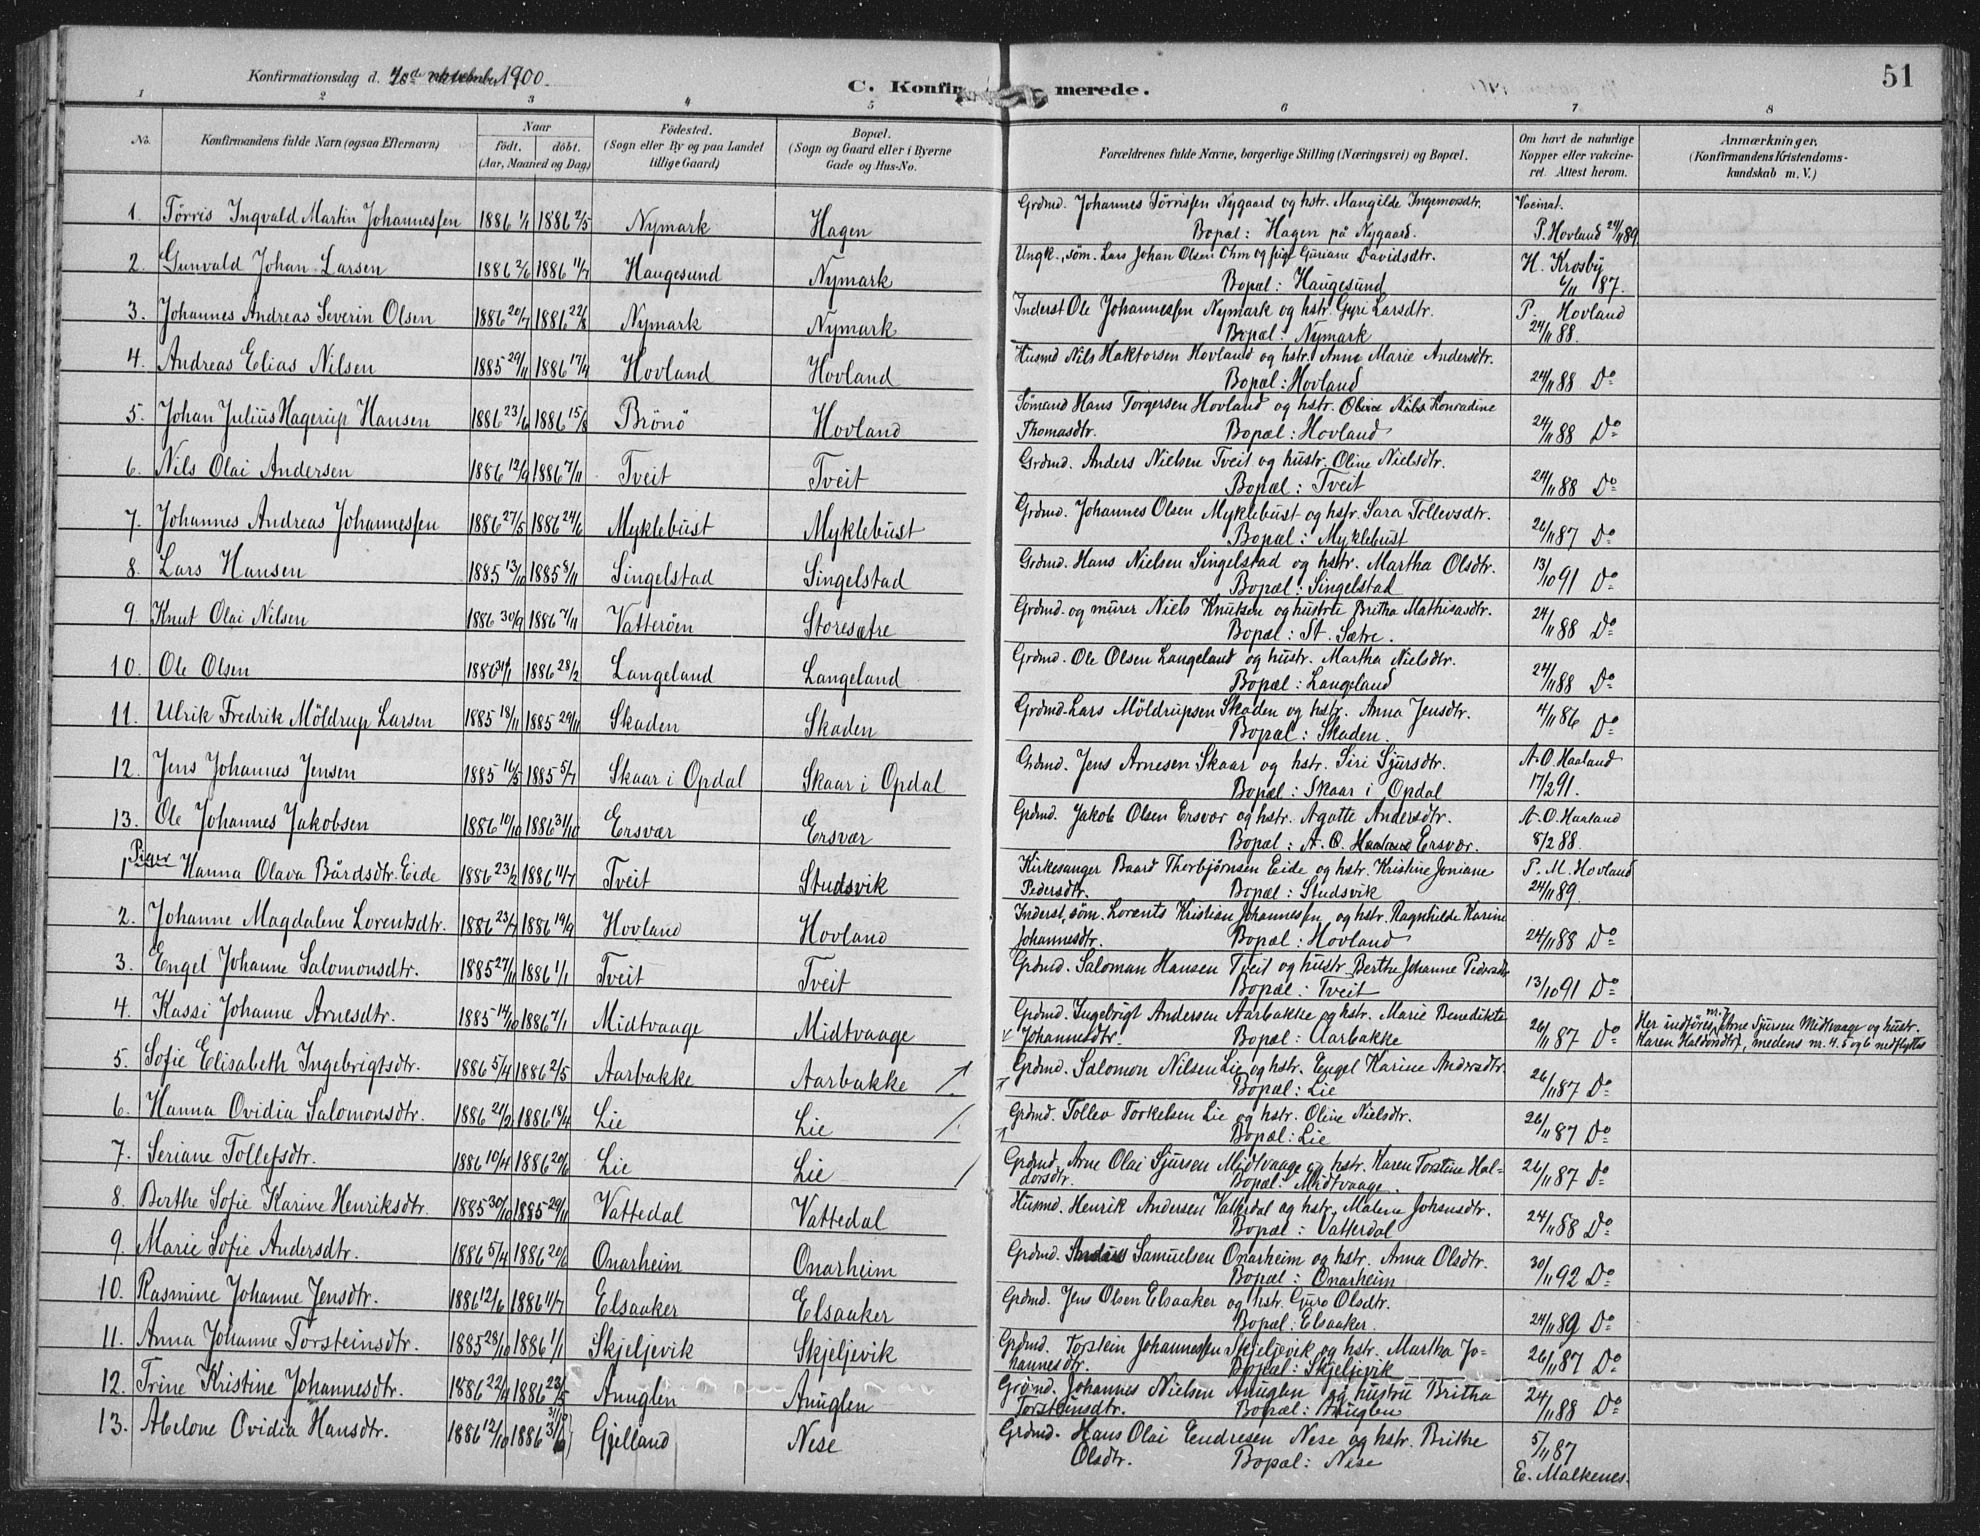 Konfirmationsdag d. 1900.
C. Konfirmerede.
51
1 2 3 4 5 6 7 8
No.
Konfirmandens fulde Navn (ogsaa Efternavn)
Naar
født. døbt.
(Aar, Maaned og Dag)
Fødested.
(Sogn eller By og paa Landet
tillige Gaard)
Bopæl.
(Sogn og Gaard eller i Byerne
Gade og Hus-No.
Forældrenes fulde Navne, borgerlige Stilling (Næringsvei) og Bopæl.
Om havt de naturlige
Kopper eller vakcine-
ret. Attest herom.
Anmærkninger.
(Konfirmandens Kristendoms-
kundskab m. V.)
1. Tørris Ingvald Martin Johannesſen 1886 1/1 1886 2/5 Nymark Hagen
Grdmd. Johannes Tørrisſen Nygaard og hstr. Mangilde Ingemorsdtr. Vacinat.
Bopæl: Hagen på Nygaard. P. Hovland 24/11 89
2. Gunvald Johan Larsen 1886 2/6 1886 11/7 Haugesund Nymark
Ungk., søm. Lars Johan Olsen Ohm og pige Guriane Davidsdtr. H. Krosby
Bopæl: Haugesund 6/11 87.
3. Johannes Andreas Severin Olsen 1886 20/7 1886 22/8 Nymark Nymark
Inderst Ole Johannesſen Nymark og hstr. Gyri Larsdtr. P. Hovland
Bopæl: Nymark 24/11 88.
4. Andreas Elias Nilsen 1885 29/11 1886 17/4 Hovland Hovland
Husmd Nils Haktorsen Hovland og hstr. Anne Marie Andersdtr.
Bopæl: Hovland 24/11 88 Do
5. Johan Julius Hagerup Hansen 1886 23/6 1886 15/8 Brönö Hovland
Sømand Hans Torgersen Hovland og hstr. Konradine
Thomasdtr. Bopæl: Hovland 24/11 88 Do
6. Nils Olai Andersen 1886 12/9 1886 7/11 Tveit Tveit
Grdmd. Anders Nielsen Tveit og hustr. Oline Nielsdtr.
Bopæl: Tveit 24/11 88 Do
7. Johannes Andreas Johannesſen 1886 27/5 1886 24/6 Myklebust Myklebust
Grdmd. Johannes Olsen Myklebust og hstr. Sara Tollevsdtr.
Bopæl: Myklebust 26/11 87 Do
8. Lars Hansen 1885 13/10 1885 8/11 Singelstad Singelstad
Grdmd. Hans Nielsen Singelstad og hstr. Martha Olsdtr.
Bopæl: Singelstad 13/10 91 Do
9. Knut Olai Nilsen 1886 30/9 1886 7/11 Vatterøen Storesætre
Grdmd. og murer Niels Knutsen og hustru Britha Mathisasdtr.
Bopæl: St. Sætre. 24/11 88 Do
10. Ole Olsen 1886 1886 28/2 Langeland Langeland
Grdmd. Ole Olsen Langeland og hustr. Martha Nielsdtr.
Bopæl: Langeland 24/11 88 Do
11. Ulrik Fredrik Möldrup Larsen 1885 18/11 1885 29/11 Skaden Skaden
Grdmd. Lars Möldrupsen Skaden og hstr. Anna Jensdtr.
Bopæl: Skaden. 4/11 86 Do
12. Jens Johannes Jensen 1885 16/5 1885 5/7 Skaar i Opdal Skaar i Opdal
Grdmd. Jens Arnesen Skaar og hstr. Siri Sjursdtr. A. O. Haaland
Bopæl: Skaar i Opdal 17/2 91.
13. Ole Johannes Jakobsen 1886 10/10 1886 31/10 Ersvær Ersvær
Grdmd. Jakob Olsen Ersvær og hstr. Agatte Andersdtr. A. O. Haaland
Bopæl: A. O. Haaland Ersvær. 8/2 88.
Piger
1 Hanna Olava Bårdsdtr. Eide 1886 23/2 1886 11/7 Tveit Studsvik
Kirkesanger Baard Thorbjørnsen Eide og hstr. Kristine Joniane P. M. Hovland
Pedersdtr. Bopæl: Studsvik 24/11 89.
2. Johanne Magdalene Lorentsdtr. 1886 23/7 1886 19/9 Hovland Hovland
Inderst, søm. Lorents Kristian Johannesſen og hstr. Ragnhilde Karine
Johannesdtr. Bopæl: Hovland 24/11 88 Do
3. Engel Johanne Salomonsdtr. 1885 27/11 1886 1/1 Tveit Tveit
Grdmd. Saloman Hansen Tveit og hustr. Berthe Johanne Pedersdtr
Bopæl: Tveit 13/10 91 Do
4. Kassi Johanne Arnesdtr. 1885 14/10 1886 7/1 Midtvaage Midtvaage
Grdmd. Ingebrigt Andersen Aarbakke og hstr. Marie Benedikte
Johannesdtr. Bopæl: Aarbakke 26/11 87 Do
nr. 7
Her indføres, Arne Sjursen Midtvaage og hustr.
Karen Haldorsdtr, medens nr. 4. 5 og 6 nedflyttes
5. Sofie Elisabeth Ingebrigtsdtr. 1886 5/4 1886 2/5 Aarbakke Aarbakke
Grdmd. Salomon Nilsen Lie og hstr. Engel Karine Andersdtr.
Bopæl: Lie 26/11 87 Do
6. Hanna Ovidia Salomonsdtr. 1886 21/2 1886 18/4 Lie Lie
Grdmd. Tollev Torkelsen Lie og hstr. Oline Nielsdtr.
Bopæl: Lie 26/11 87 Do
7. Seriane Tollefsdtr. 1886 10/4 1886 20/6 Lie Lie
Grdmd. Arne Olai Sjursen Midtvaage og hstr. Karen Torstine Hal-
dorsdtr. Bopæl: Midtvaage. 26/11 87 Do
8. Berthe Sofie Karine Henriksdtr. 1885 30/10 1885 29/11 Vattedal Vattedal
Husmd. Henrik Andersen Vatterdal og hstr. Malene Johsnsdtr.
Bopæl: Vatterdal 24/11 88 Do
9. Marie Sofie Andersdtr. 1886 5/4 1886 20/6 Onarheim Onarheim
Grdmd. Anders Samuelsen Onarheim og hstr. Anna Olsdtr.
Bopæl: Onarheim 30/11 92 Do
10. Rasmine Johanne Jensdtr. 1886 12/6 1886 11/7 Elsaaker Elsaaker
Grdmd. Jens Olsen Elsaaker og hstr. Guro Olsdtr.
Bopæl: Elsaaker. 24/11 89 Do
11. Anna Johanne Torsteinsdtr. 1885 28/10 1886 1/1 Skjeljevik Skjeljevik
Grdmd. Torstein Johannesſen Skjeljevik og hstr. Martha Jo-
hannesdtr. Bopæl: Skjeljevik 26/11 87 Do
12. Trine Kristine Johannesdtr. 1886 22/4 1886 23/5 Anuglen Anuglen
Grdmd. Johannes Nielsen Anuglen og hustru Britha
Torsteinsdtr. Bopæl: Anuglen 24/11 88 Do
13. Abelone Ovidia Hansdtr. 1886 12/10 1886 31/10 Gjelland Nese
Grdmd. Hans Olai Endresen Nese og hstr. Brithe
Olsdtr. Bopæl: Nese 5/11 87
E. Malkenes.